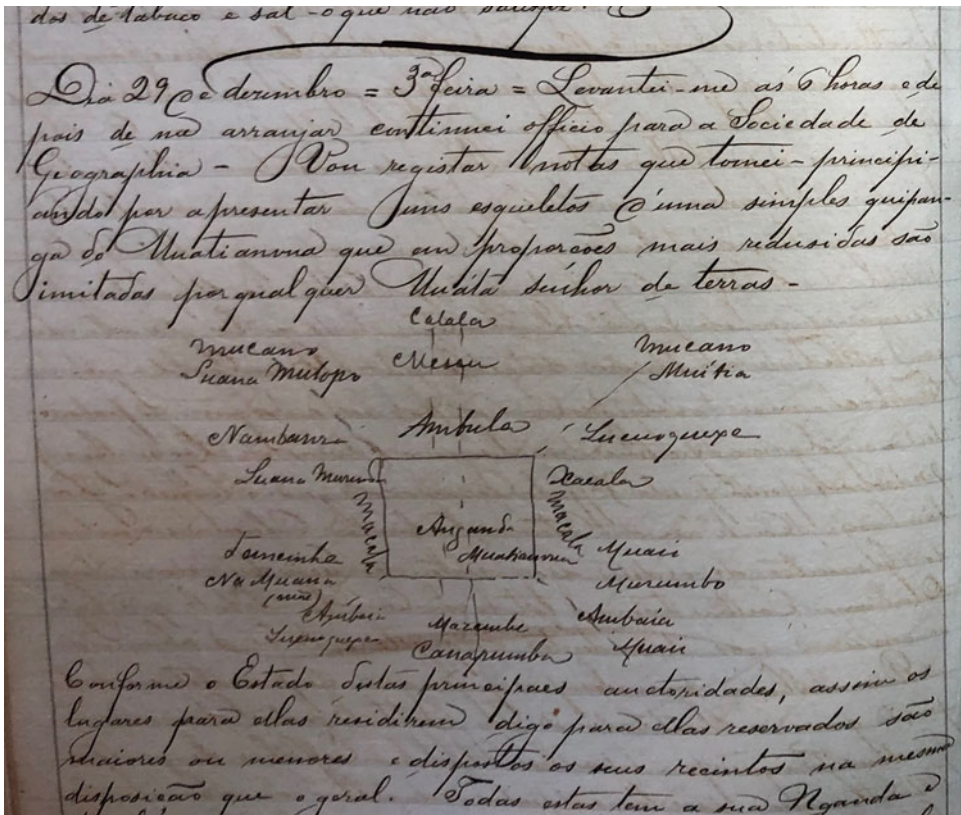 dos de tabaco e sal - o que não
Dia 29 de dezembro = 3ª feira = Levantei-me ás 6 horas e de
pois de me arranjar continuei officio para a Sociedade de
Geographia - Vou registar notas que tomei - principi-
ando por apresentar uns esqueletos d'uma simples quipan-
ga do Muatianvua que em proporcões mais redusidas são
imitadas por qualquer Muata senhor de terras -
Calala
mucano
Suana Mulopo
Mesu
mucano
Muitia
Nambanza
Ambula
Lucuoquexe
Suana Murunda
Xacala
Macala
Anganda
Muatianvua
Macala
Temeinhe
Na Muana
(mãe)
Ambaia
Lucuoquexe
Mazembe
Canapumba
Muari
Murumbo
Ambaia
Muari
Conforme o Estado destas principaes auctoridades, assim os
lugares para ellas residirem digo para ellas reservados são
maiores ou menores e dispostos os seus recintos na mesma
disposição que o geral. Todas estas tem a sua Nganda e